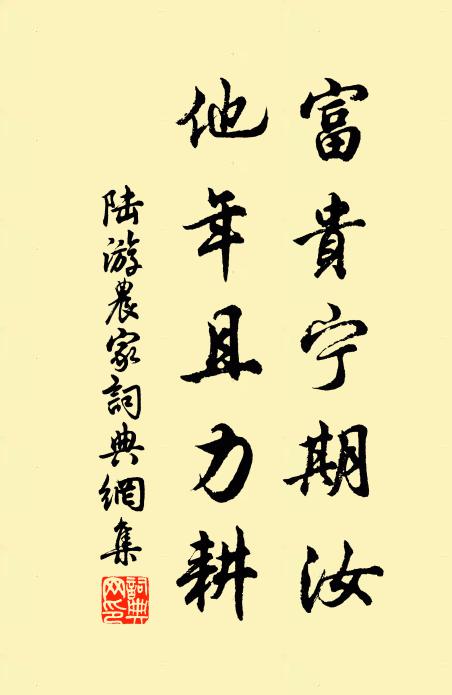 富貴宁期汝
他年且力耕
陆游農家詞典網集
詞典网印